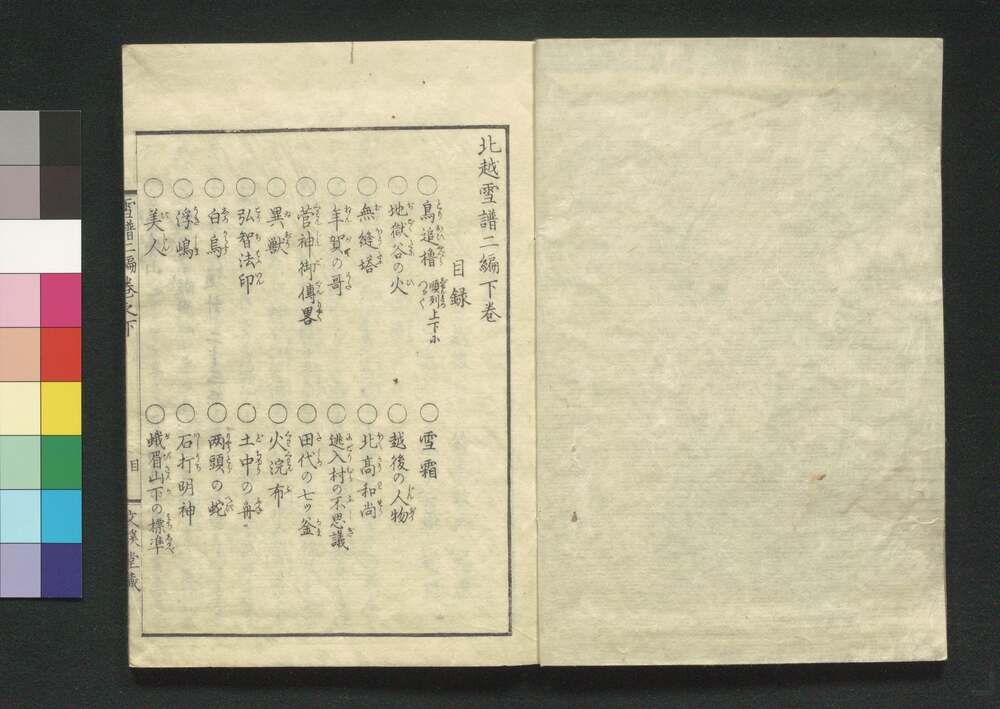 北越雪譜二編下巻
目録
○鳥追櫓 順列上下小つく
○雪霜
○地獄谷の火
○越後の人物
○無縫塔
○北高和尚
○年賀の哥
○逃入村の不思議
○菅神御傳畧
○田代の七ツ釜
○異獣
○火浣布
○弘智法印
○土中の舟
○白烏
○两頭の蛇
○浮嶋
○石打明神
○美人
○蛾眉山下の標準
雪譜二編巻之下
目
文溪堂藏